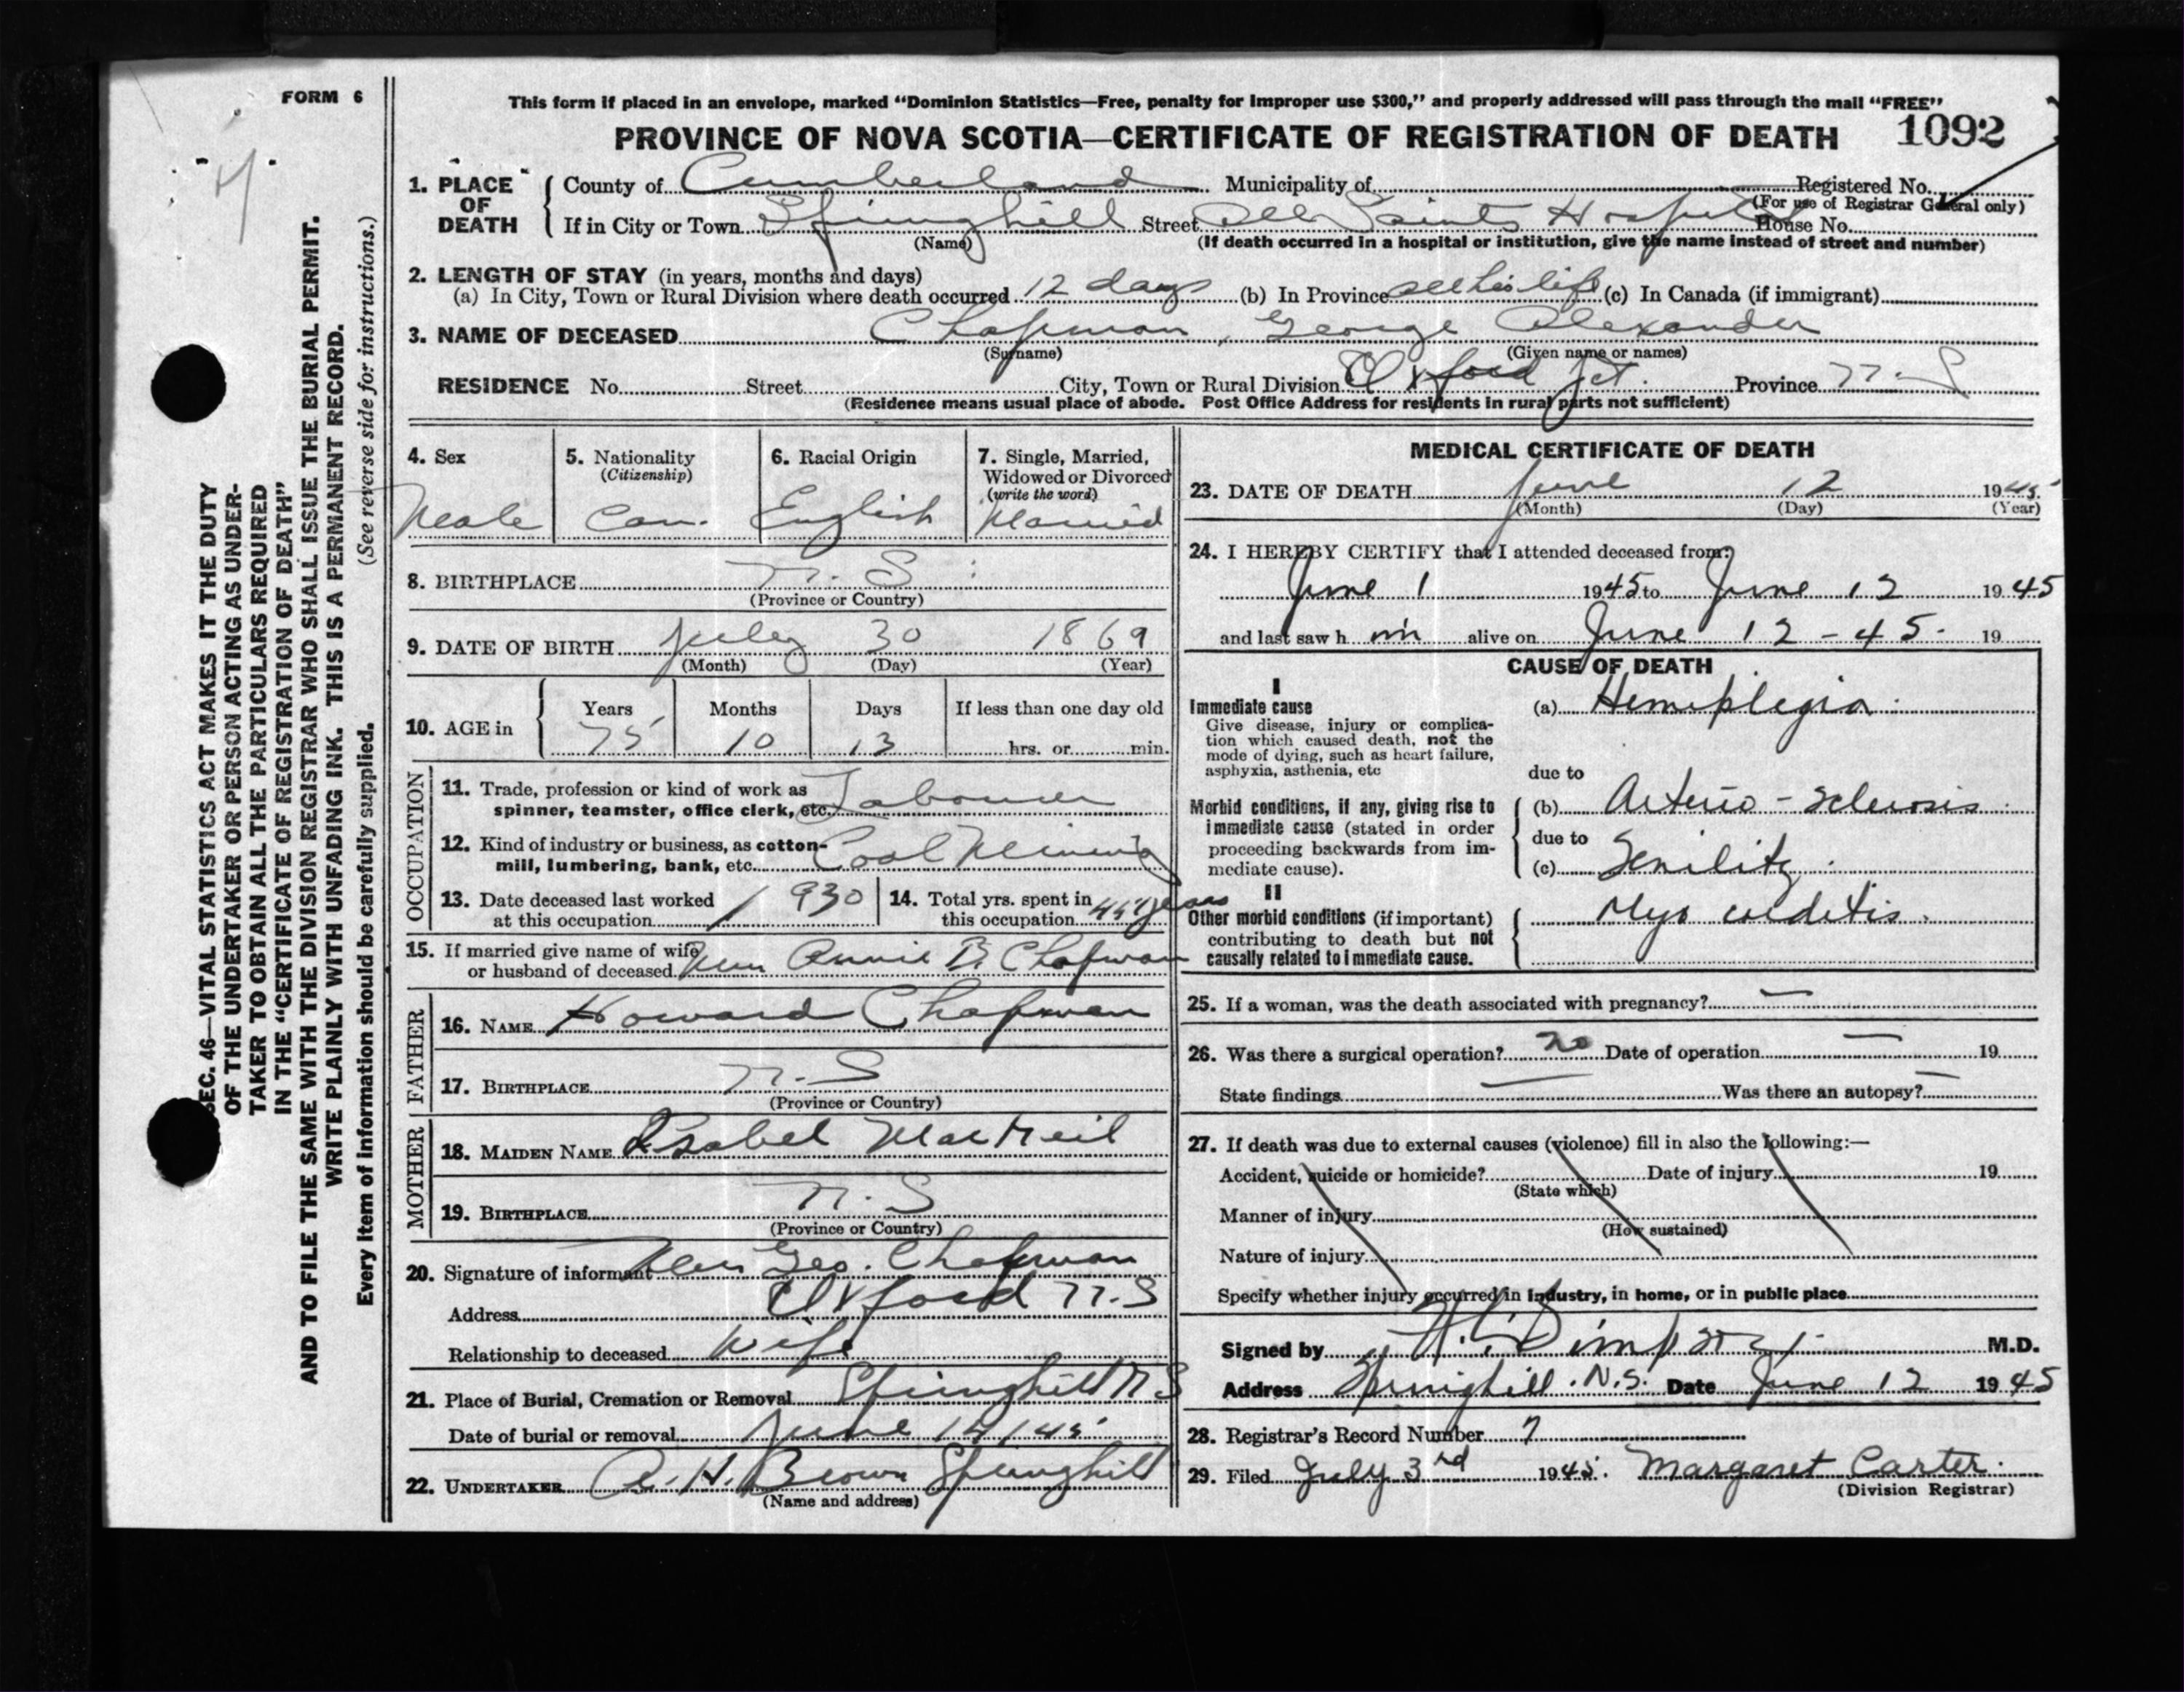 FORM 6
This form if placed in an envelope, marked “Dominion Statistics—Free, penalty for improper use $300,” and properly addressed will pass through the mail “FREE”
PROVINCE OF NOVA SCOTIA—CERTIFICATE OF REGISTRATION OF DEATH 1092
1. PLACE OF DEATH County of Cumberland Municipality of Registered No.
(For use of Registrar General only)
If in City or Town Springhill Street All Saints Hospital House No.
(Name) (If death occurred in a hospital or institution, give the name instead of street and number)
2. LENGTH OF STAY (in years, months and days)
(a) In City, Town or Rural Division where death occurred 12 days (b) In Province all his life (c) In Canada (if immigrant)
3. NAME OF DECEASED Chapman, George Alexander
(Surname) (Given name or names)
RESIDENCE No. Street City, Town or Rural Division Oxford Jct. Province N.S
(Residence means usual place of abode. Post Office Address for residents in rural parts not sufficient)
4. Sex 5. Nationality 6. Racial Origin 7. Single, Married,
(Citizenship) Widowed or Divorced
(write the word)
Male Can. English Married
8. BIRTHPLACE N.S
(Province or Country)
9. DATE OF BIRTH July 30 1869
(Month) (Day) (Year)
10. AGE in Years Months Days If less than one day old
75 10 13 hrs. or min.
OCCUPATION
11. Trade, profession or kind of work as
spinner, teamster, office clerk, etc. Labourer
12. Kind of industry or business, as cotton-
mill, lumbering, bank, etc. Coal Mining
13. Date deceased last worked
at this occupation 1930
14. Total yrs. spent in
this occupation years
15. If married give name of wife
or husband of deceased Annie B. Chapman
FATHER
16. NAME Howard Chapman
17. BIRTHPLACE N.S
(Province or Country)
MOTHER
18. MAIDEN NAME Isabel MacNeil
19. BIRTHPLACE N.S
(Province or Country)
20. Signature of informant Mrs Geo. Chapman
Address Oxford N.S
Relationship to deceased Wife
21. Place of Burial, Cremation or Removal Springhill N S
Date of burial or removal June 14/45
22. UNDERTAKER A. H. Brown Springhill
(Name and address)
MEDICAL CERTIFICATE OF DEATH
23. DATE OF DEATH June 12 1945
(Month) (Day) (Year)
24. I HEREBY CERTIFY that I attended deceased from:
June 1 1945 to June 12 1945
and last saw h im alive on June 12 - 45. 19
CAUSE OF DEATH
I
Immediate cause
Give disease, injury or complica-
tion which caused death, not the
mode of dying, such as heart failure,
asphyxia, asthenia, etc
(a) Hemiplegia
due to
Morbid conditions, if any, giving rise to
immediate cause (stated in order
proceeding backwards from im-
mediate cause).
(b) Arterio - Sclerosis
due to
(c) Senility
II
Other morbid conditions (if important)
contributing to death but not
causally related to immediate cause.
Myo carditis.
25. If a woman, was the death associated with pregnancy? —
26. Was there a surgical operation? no Date of operation — 19
State findings — Was there an autopsy? —
27. If death was due to external causes (violence) fill in also the following:—
Accident, suicide or homicide? Date of injury 19
(State which)
Manner of injury
(How sustained)
Nature of injury
Specify whether injury occurred in industry, in home, or in public place
Signed by M.D.
Address Springhill. N.S. Date June 12 1945
28. Registrar's Record Number 7
29. Filed July 3rd 1945. Margaret Carter.
(Division Registrar)
SEC. 46—VITAL STATISTICS ACT MAKES IT THE DUTY
OF THE UNDERTAKER OR PERSON ACTING AS UNDER-
TAKER TO OBTAIN ALL THE PARTICULARS REQUIRED
IN THE “CERTIFICATE OF REGISTRATION OF DEATH”
AND TO FILE THE SAME WITH THE DIVISION REGISTRAR WHO SHALL ISSUE THE BURIAL PERMIT.
WRITE PLAINLY WITH UNFADING INK. THIS IS A PERMANENT RECORD.
Every item of information should be carefully supplied. (See reverse side for instructions.)